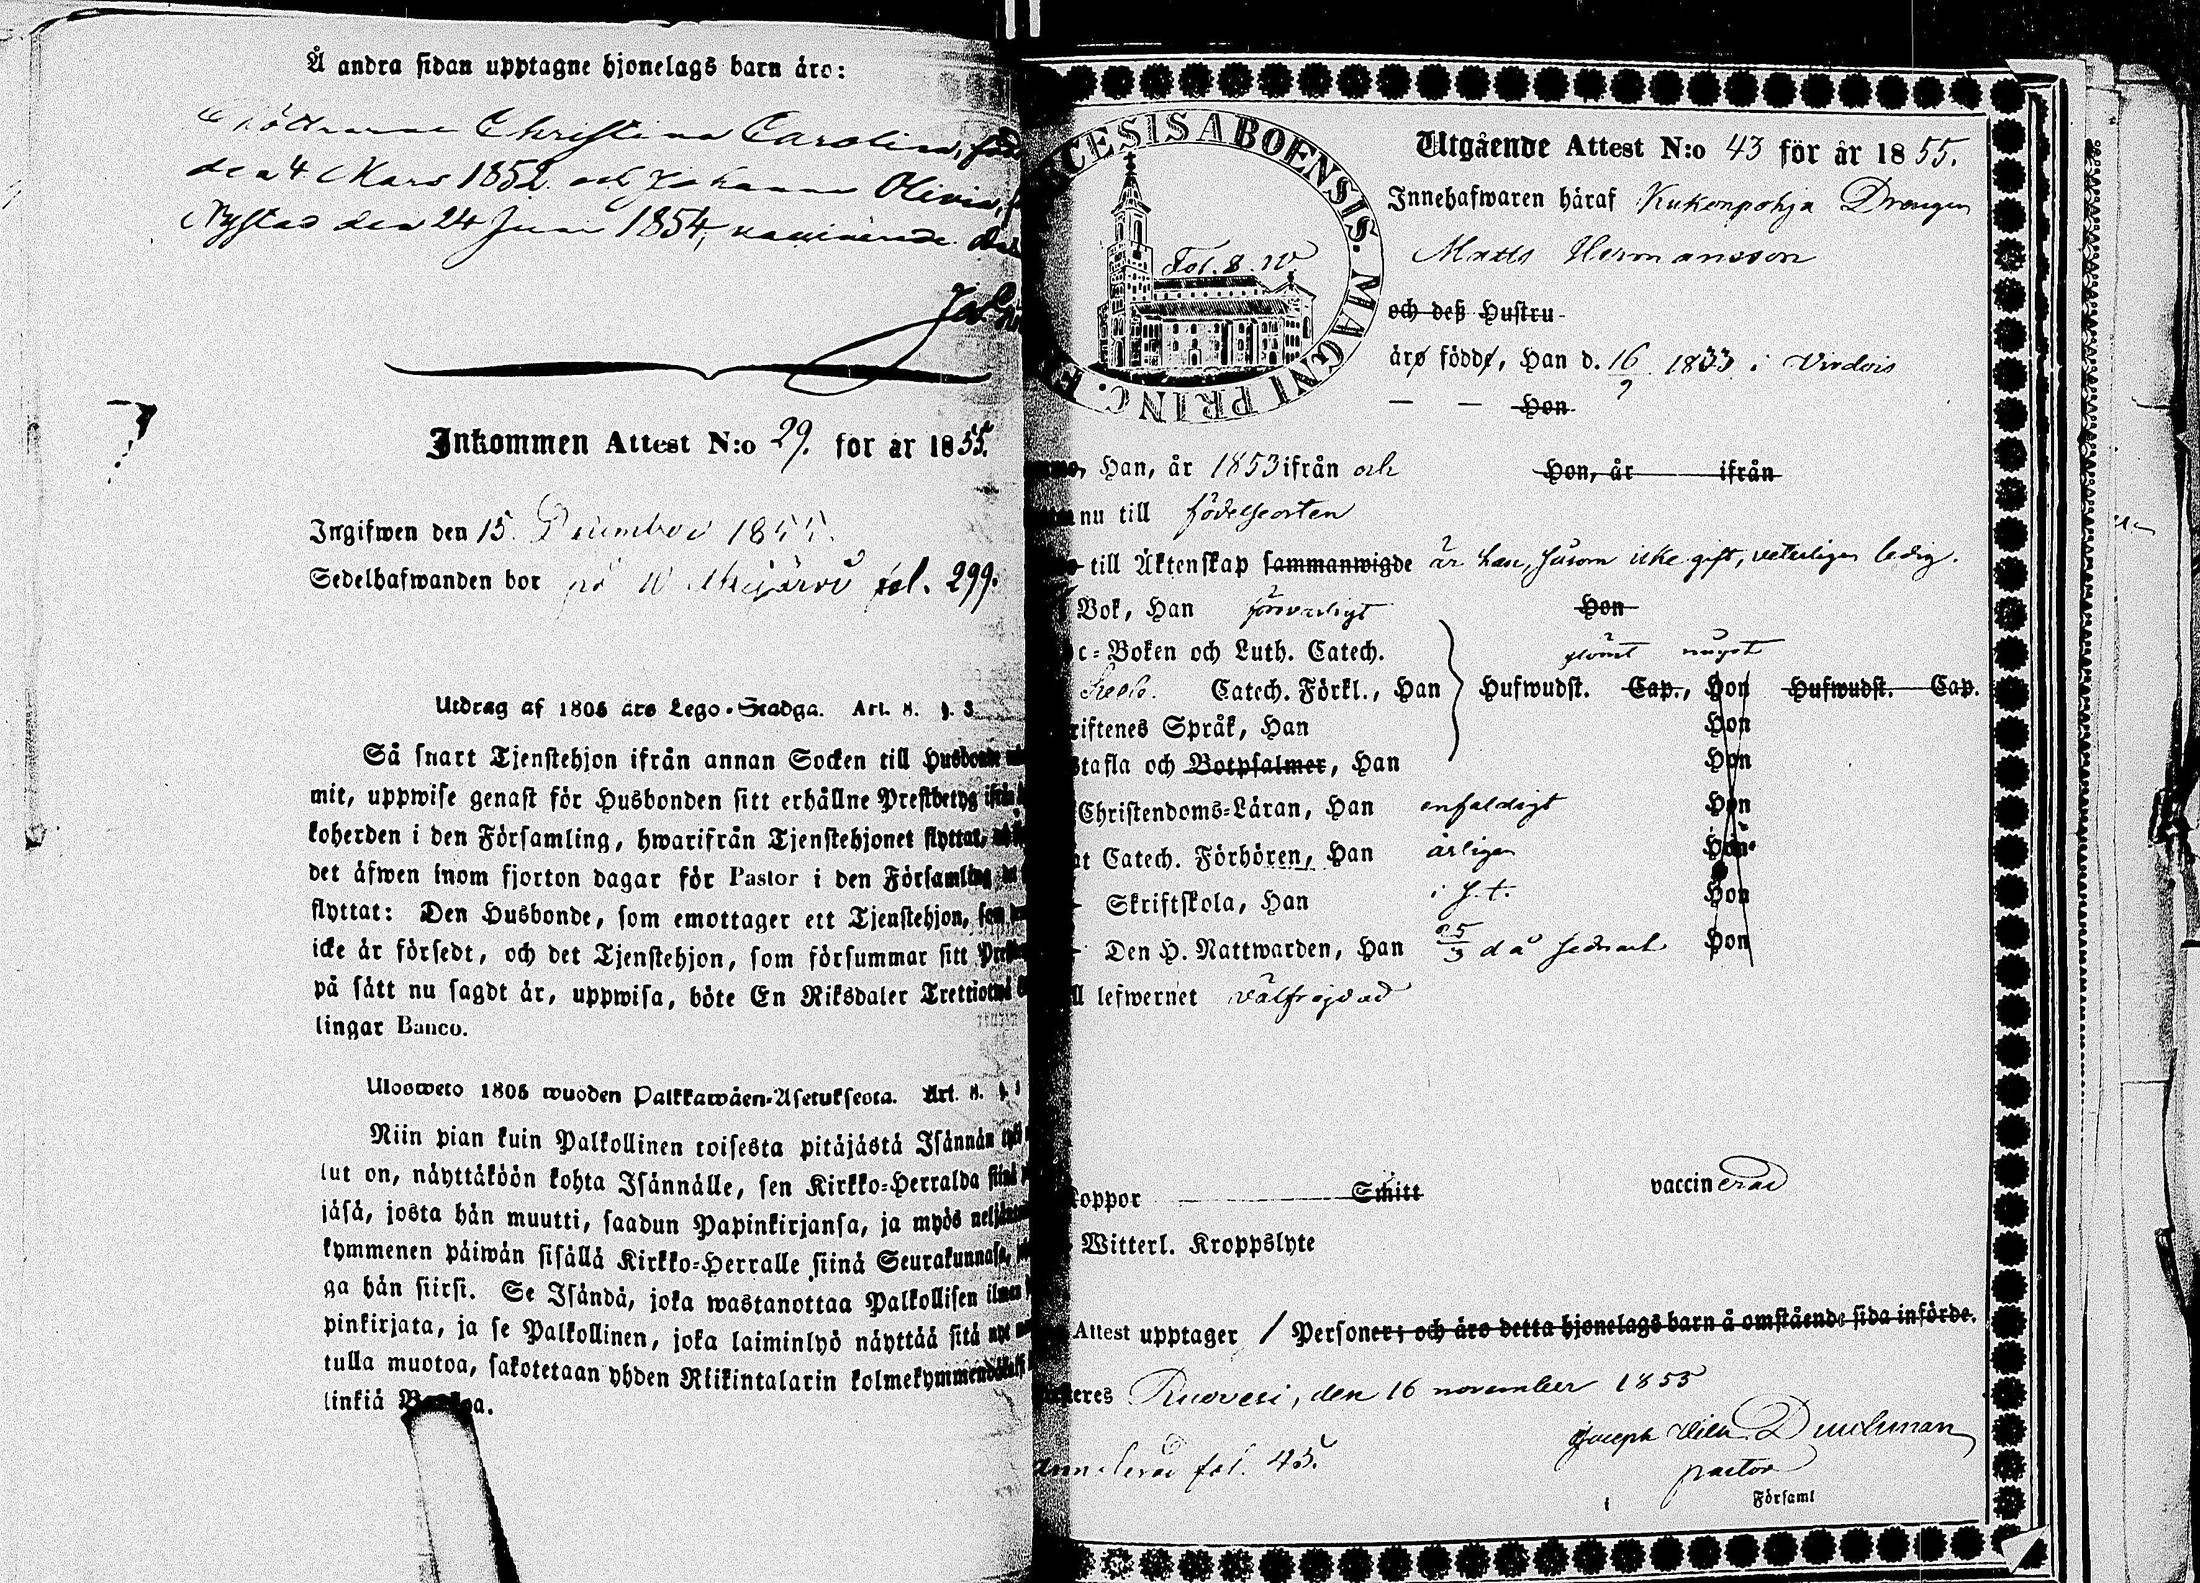 Å andra sidan upptagne hjonelags barn äro:
Döttrarne Christina Carolina, född
den 4 Mars 1852 och Johanna Olivia,
Nystad den 24 Juni 1854, vaccinerade
Inkommen Attest N:o 29. för år 1855.
Ingifwen den 15. December 1855.
Sedelhafwanden bor på fol. 299.
Utdrag af 1805 års Lego-Stadga. Art. 8. §. 3
Så snart Tjenstehjon ifrån annan Socken till Husbonde
mit, uppwise genast för Husbonden sitt erhållne Prestbetyg ifrån
koherden i den Församling, hwarifrån Tjenstehjonet flyttat,
det äfwen inom fjorton dagar för Pastor i den Församling
flyttat: Den Husbonde, som emottager ett Tjenstehjon, som
icke är försedt, och det Tjenstehjon, som försummar sitt
på sätt nu sagdt är, uppwisa, böte En Riksdaler Trettiotwå
lingar Banco.
Ulosweto 1805 wuoden Palkkawäen-Asetuksesta. Art. 8. §.
Niin pian kuin Palkollinen toisesta pitäjästä Isännän tykö
lut on, näyttäköön kohta Isännälle, sen Kirkko-Herralda siinä
jäsä, josta hän muutti, saadun Papinkirjansa, ja myös
kymmenen päiwän sisällä Kirkko-Herralle siinä Seurakunnasa,
ga hän siirsi. Se Isändä, joka wastanottaa Palkollisen ilman
pinkirjata, ja se Palkollinen, joka laiminlyö näyttää sitä nyt
tulla muotoa, sakotetaan yhden Riikintalarin kolmekymmendä
linkiä Bankoa.
CESIS ABOENSIS. MAGNI PRINC. FI
Fol. 8. W
Utgående Attest N:o 43 för år 1855.
Innehafwaren häraf Kukonpohja Drengen
Matts Hermansson
och deß Hustru
äro födde, Han d. 16/9 1833 i Virdois
Hon
Han, år 1853 ifrån och Hon, år ifrån
nu till födelseorten
till Äktenskap sammanwigde är han, såsom icke gift, veterligen ledig.
Bok, Han försvarligt Hon
c-Boken och Luth. Catech. glömt något
Catech. Förkl., Han Hufwudst. Cap., Hon Hufwudst. Cap.
riftenes Språk, Han Hon
stafla och Botpsalmer, Han Hon
Christendoms-Läran, Han enfaldigt Hon
at Catech. Förhören, Han årligen Hon
Skriftskola, Han i s. t. Hon
Den H. Nattwarden, Han 25/3 d å Hon
ll lefwernet välfrejdad
Koppor Smitt vaccinerad
Witterl. Kroppslyte
Attest upptager 1 Personer; och äro detta hjonelags barn å omstående sida införde.
teres Ruovesi, den 16 november 1855
Joseph Wilh. Durchman
pastor
Församl
fol. 45.